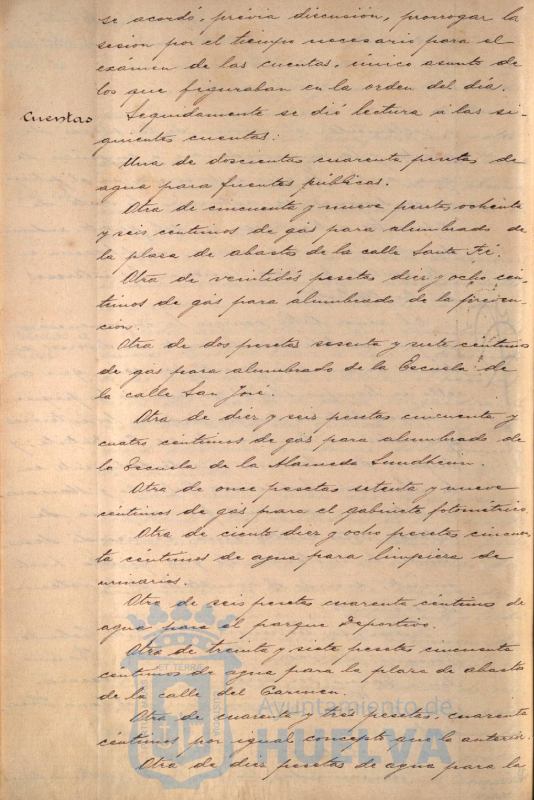 se acordó, prévia discusión, prorrogar la
sesion por el tiempo necesario para el
exámen de las cuentas, único asunto de
los que figuraban en la orden del día.
Cuentas
Seguidamente se dió lectura á las si-
guientes cuentas:
Una de doscientas cuarenta pesetas de
agua para fuentes públicas.
Otra de cincuenta y nueve pesetas ochenta
y seis céntimos de gas para alumbrado de
la plaza de abastos de la calle Santa Fé.
Otra de veintidós pesetas diez y ocho cén-
timos de gas para alumbrado de la preven-
cion.
Otra de dos pesetas sesenta y siete céntimos
de gas para alumbrado de la Escuela de
la calle San José.
Otra de diez y seis pesetas cincuenta y
cuatro céntimos de gas para alumbrado de
la Escuela de la Alameda Sundheim.
Otra de once pesetas setenta y nueve
céntimos de gas para el gabinete fotométrico.
Otra de ciento diez y ocho pesetas cincuen-
ta céntimos de agua para limpieza de
urinarios.
Otra de seis pesetas cuarenta céntimos de
agua para el parque deportivo.
Otra de treinta y siete pesetas cincuenta
centimos de agua para la plaza de abastos
de la calle del Carmen.
Otra de cuarenta y tres pesetas, cuarenta
céntimos por igual concepto que la anterior.
Otra de diez pesetas de agua para la
Ayuntamiento de
HUELVA